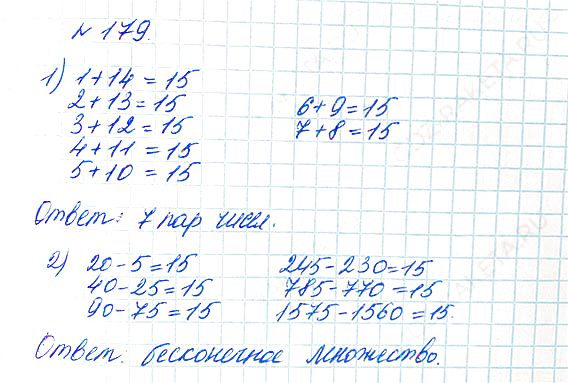 № 179.
1) 1+14 = 15
2+13=15
3+12=15
4+11 = 15
5+10 = 15
6+9=15
7+8=15
Ответ: 7 пар чисел.
2) 20-5=15
40-25=15
90-75=15
245-230=15
785-770=15
1575-1560=15.
Ответ: бесконечное множество.